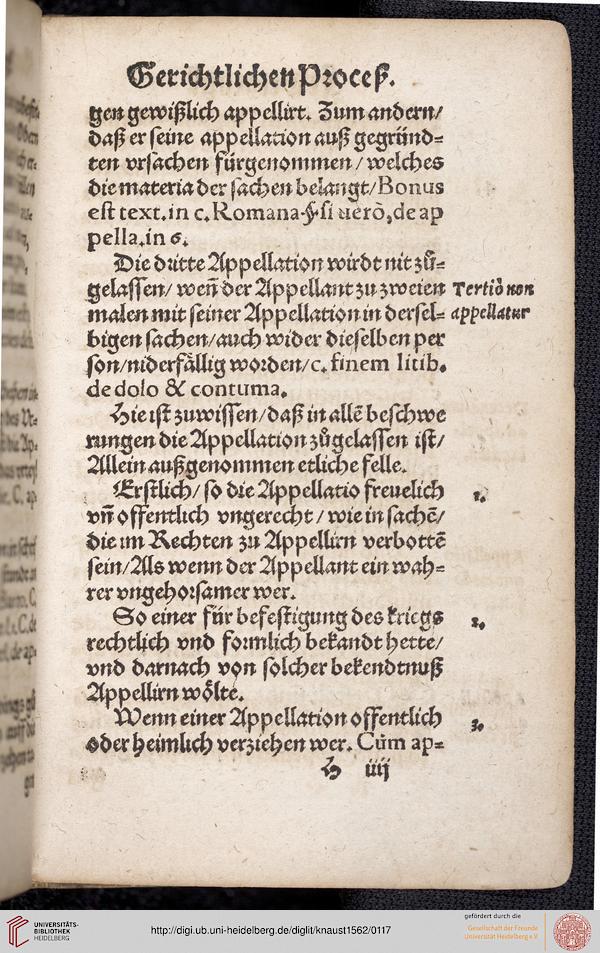 Gerichtlichen Proceß.
gen gewißlich appellirt. Zum andern/
daß er seine appellation auß gegründ=
ten vrsachen fürgenommen / welches
die materia der sachen belangt/Bonus
est text. in c. Romana. §. si uerò, de ap
pella. in 6.
Die dritte Appellation wirdt nit zů=
gelassen/ weñ der Appellant zu zweien
Tertiò non
malen mit seiner Appellation in dersel=
appellatur
bigen sachen/auch wider dieselben per
son/niderfällig worden/c. finem litib.
de dolo & contuma.
Hie ist zuwissen/daß in allẽ beschwe
rungen die Appellation zůgelassen ist/
Allein außgenommen etliche felle.
Erstlich/ so die Appellatio freuelich
1.
vñ offentlich vngerecht / wie in sachẽ/
die im Rechten zu Appellirn verbottẽ
sein/Als wenn der Appellant ein wah=
rer vngehorsamer wer.
So einer für befestigung des kriegs
2.
rechtlich vnd formlich bekandt hette/
vnd darnach von solcher bekendtnuß
Appellirn wölte.
Wenn einer Appellation offentlich
3.
oder heimlich verziehen wer. Cùm ap=
H iiij
UNIVERSITÄTS-
BIBLIOTHEK
HEIDELBERG
http://digi.ub.uni-heidelberg.de/diglit/knaust1562/0117
gefördert durch die
Gesellschaft der Freunde
Universität Heidelberg e.V.